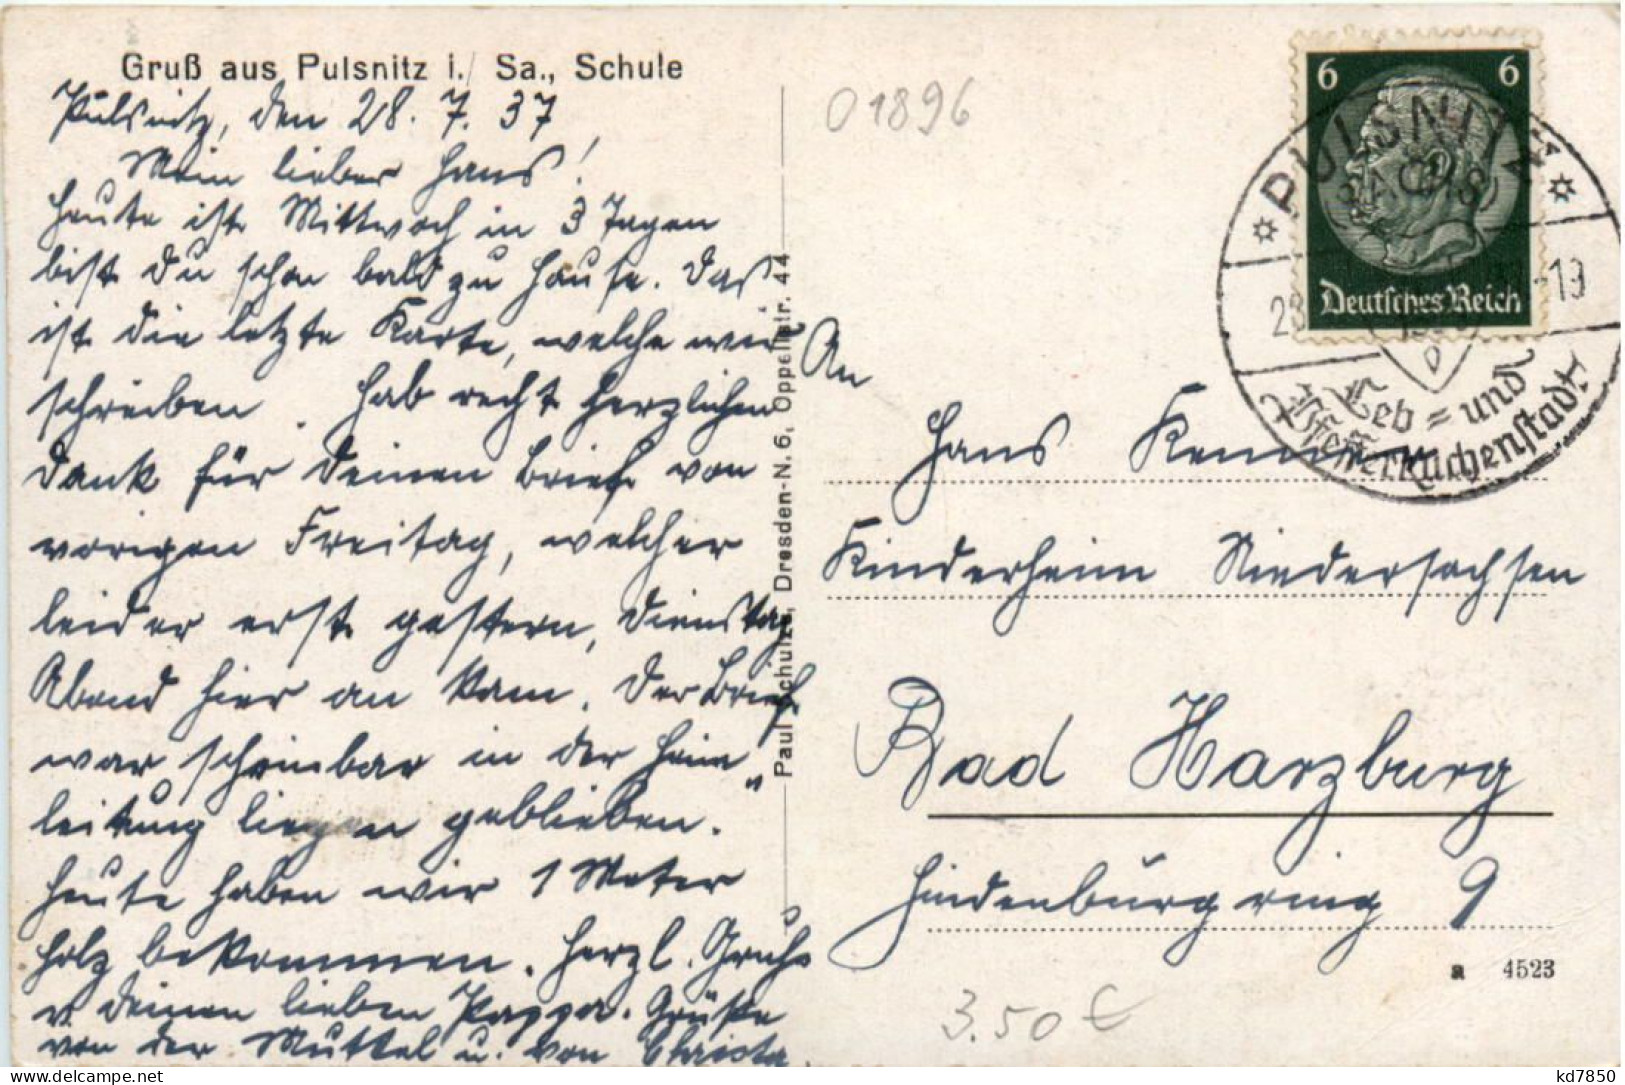 Gruß aus Pulsnitz i. Sa., Schule
Pulsnitz, den 28. 7. 37
Mein lieber Hans!
Heute ist Mittwoch in 3 Tagen
bist Du schon bald zu Hause. Das
ist die letzte Karte, welche wir
schreiben. Hab recht herzlichen
Dank für Deinen Brief von
vorigen Freitag, welcher
leider erst gestern, Dienstag
Abend hier an kam. Der Brief
war scheinbar in der Heim"
leitung liegen geblieben.
Heute haben wir 1 Meter
Holz bekommen. Herzl. Gruße
v. Deinen lieben Pappa. Grüße
von der Muttel u. von Christa.
Paul Schulze, Dresden-N. 6, Oppelstr. 44
01896
An
Hans
Kinderheim Niedersachsen
Bad Harzburg
Hindenburgring 9
a 4523
3.50 €
6 6
Deutsches Reich
PULSNITZ
(SACHS)
28 -19
Leb= und
Pfefferkuchenstadt
kd7850